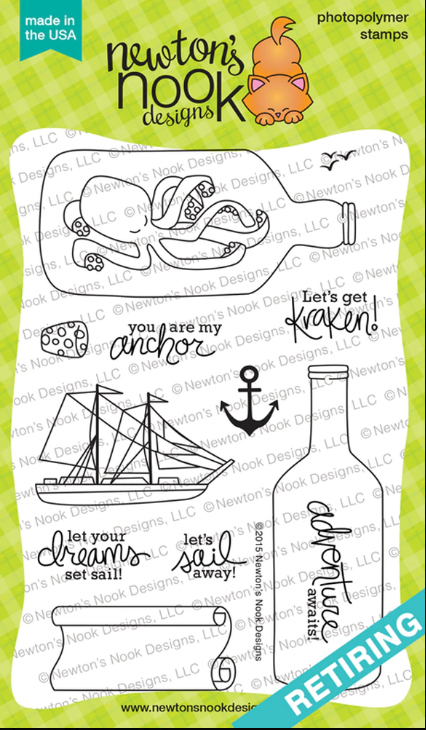 made in
the USA
photopolymer
stamps
newton's
nook
designs
Let's get
kraken!
you are my
anchor
let your
dreams
set sail!
let's
sail
away!
adventure
awaits!
©2015 Newton's Nook Designs
RETIRING
©Newton's Nook Designs, LLC